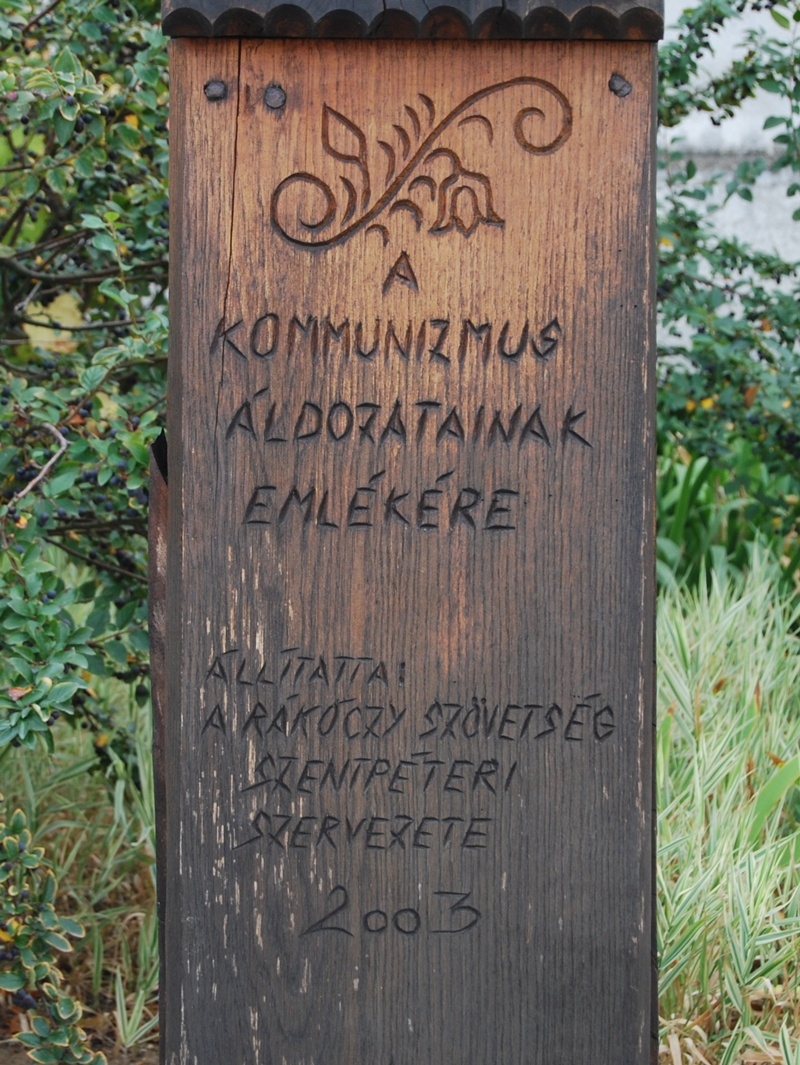 A
KOMMUNIZMUS
ÁLDOZATAINAK
EMLÉKÉRE
ÁLLÍTATTA:
A RÁKÓCZY SZÖVETSÉG
SZENTPÉTERI
SZERVEZETE
2003